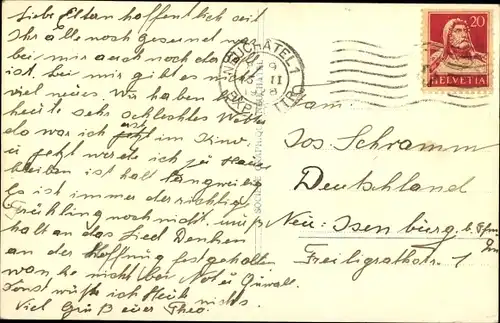 Liebe Eltern hoffentlich seit
Ihr Alle noch gesund was
bei mir auch noch der Fall
ist. Bei mir gibt es nicht
viel neues. Wir haben
heute sehr schlechtes Wetter
da war ich erst jetzt im Kino
u jetzt werde ich zu Hause
bleiben ist halt langweilig
Es ist immer der richtige
Frühling noch nicht. muß
halt an das Lied Denken
an der Hoffnung festgehalten
wan ke nicht bei Not u
Sonst wüßte ich Heute nichts
Viel Grüß euer Theo.
NEUCHATEL 1
9
II
EXP. LETTR.
20
HELVETIA
Fam
Jos Schramm
Deutschland
Neu-Isenburg b. Ffm
Freiligrathstr. 1